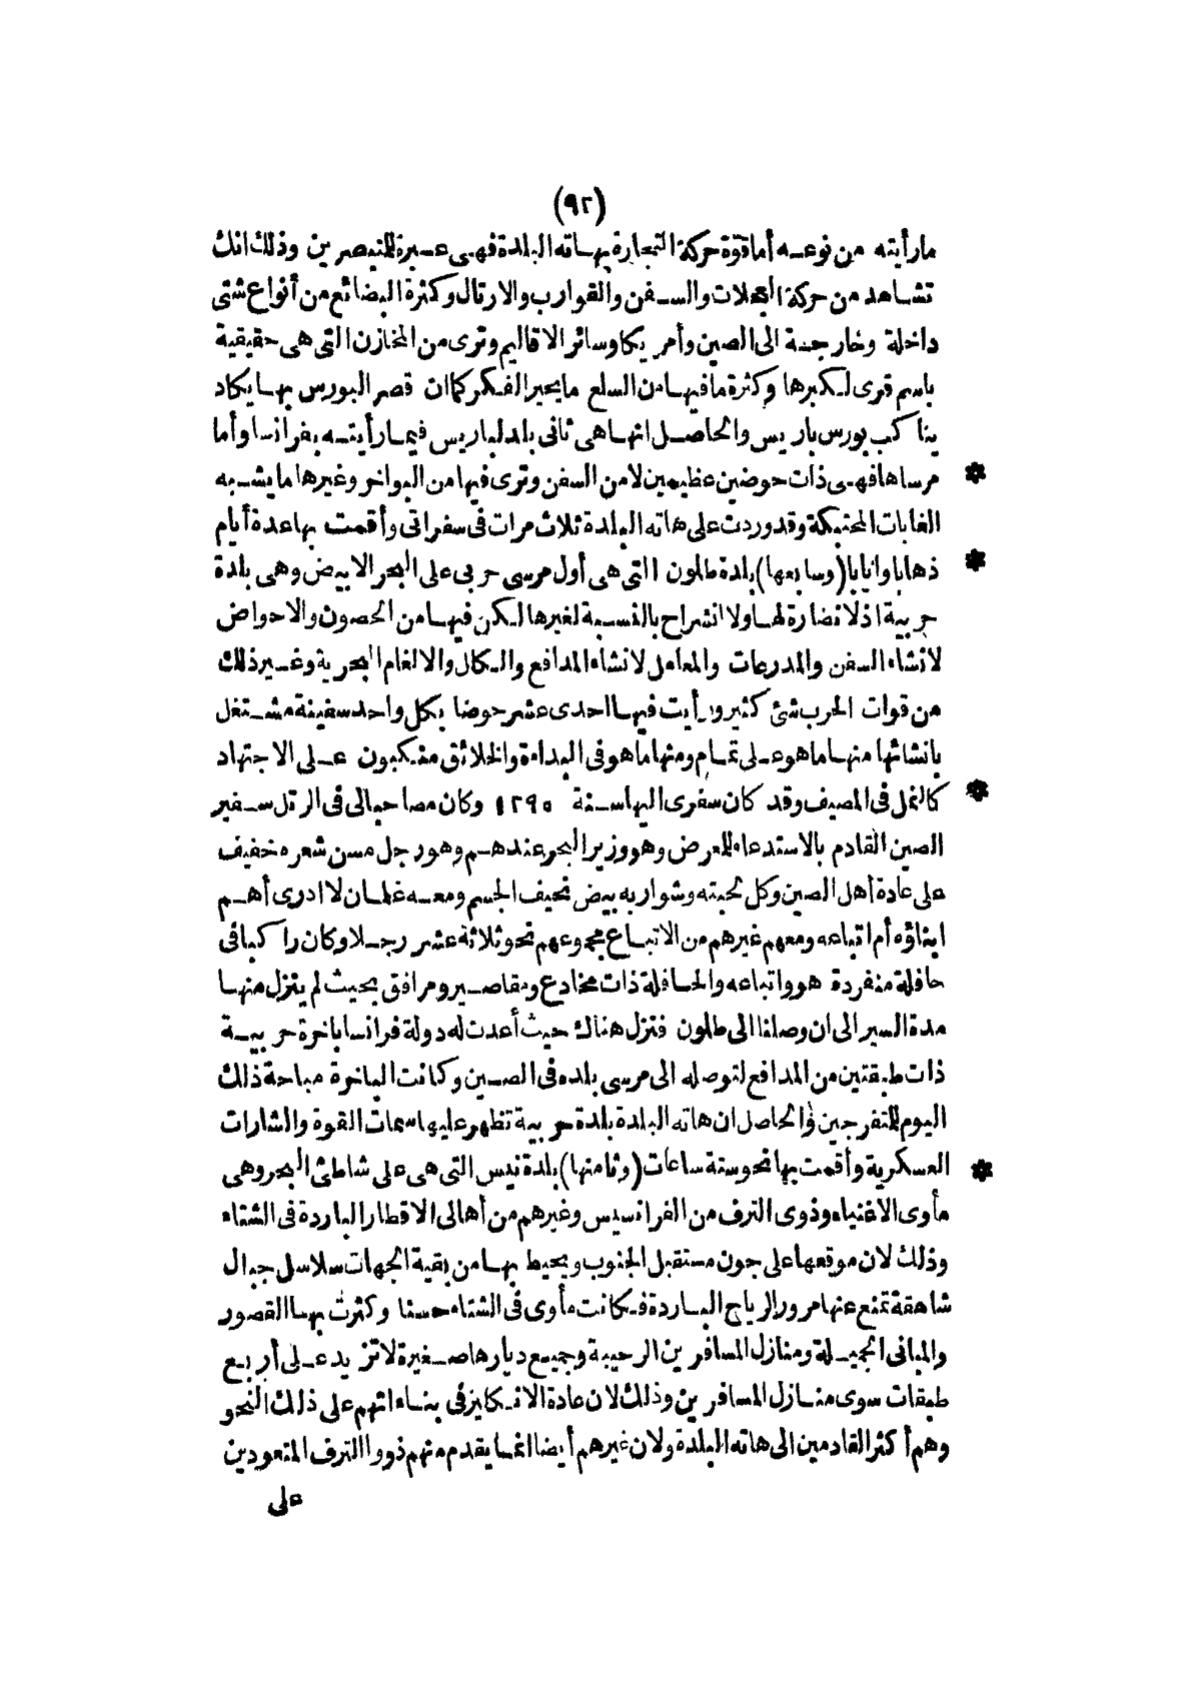 (٩٢)
مارأيته من نوعه أما قوة حركة التجارة بهاته البلدة فهى عبرة للمتبصرين وذلك انك
تشاهد من حركة العجلات والسفن والقوارب والارتال وكثرة البضائع من أنواع شتى
داخلة وخارجة الى الصين وأمريكا وسائر الاقاليم وترى من المخازن التى هى حقيقية
باسم قرى لكبرها وكثرة ما فيها من السلع ما يحير الفكر كما ان قصر البورس بها يكاد
يناكب بورس باريس والحاصل انها هى ثانى بلد لباريس فيما رأيته بفرانسا وأما
* مرساها فهى ذات حوضين عظيمين لامن السفن وترى فيها من البواخر وغيرها ما يشبه
الغابات المحتبكة وقد وردت على هاته البلدة ثلاث مرات فى سفراتى وأقمت بها عدة أيام
* ذهابا وايابا (وسابعها) بلدة طلون التى هى أول مرسى حربى على البحر الابيض وهى بلدة
حربية اذ لا نضارة لها ولا انشراح بالنسبة لغيرها لكن فيها من الحصون والاحواض
لانشاء السفن والمدرعات والمعامل لانشاء المدافع والكلل والالغام البحرية وغير ذلك
من قوات الحرب شئ كثير ورأيت فيها احدى عشر حوضا بكل واحد سفينة مشتغل
بانشائها منها ما هو على تمام ومنها ما هو فى البداءة والخلائق منكبون على الاجتهاد
* كالنمل فى المصيف وقد كان سفرى اليها سنة ١٢٩٥ وكان مصاحبا لى فى الرتل سفير
الصين القادم بالاستدعاء للعرض وهو وزير البحر عندهم وهو رجل مسن شعره خفيف
على عادة أهل الصين وكل لحيته وشواربه بيض نحيف الجسم ومعه غلمان لا ادرى أهم
ابناؤه أم اتباعه ومعهم غيرهم من الاتباع مجموعهم نحو ثلاثة عشر رجلا وكان راكبا فى
حافلة منفردة هو واتباعه والحافلة ذات مخادع ومقاصير ومرافق بحيث لم ينزل منها
مدة السير الى ان وصلنا الى طلون فنزل هناك حيث أعدت له دولة فرانسا باخرة حربية
ذات طبقتين من المدافع لتوصله الى مرسى بلده فى الصين وكانت الباخرة مباحة ذلك
اليوم للتفرجين والحاصل ان هاته البلدة بلدة حربية تظهر عليها سمات القوة والشارات
* العسكرية وأقمت بها نحو ستة ساعات (وثامنها) بلدة نيس التى هى على شاطئ البحر وهى
مأوى الاغنياء وذوى الترف من الفرانسيس وغيرهم من أهالى الاقطار الباردة فى الشتاء
وذلك لان موقعها على جون مستقبل الجنوب ويحيط بها من بقية الجهات سلاسل جبال
شاهقة تمنع عنها مرور الرياح الباردة فكانت مأوى فى الشتاء حسنا وكثرت بها القصور
والمبانى الجميلة ومنازل المسافرين الرحيبة وجميع ديارها صغيرة لا تزيد على أربع
طبقات سوى منازل المسافرين وذلك لان عادة الانكليز فى بناءاتهم على ذلك النحو
وهم أكثر القادمين الى هاته البلدة ولان غيرهم أيضا انما يقدم منهم ذووا الترف المتعودين
على